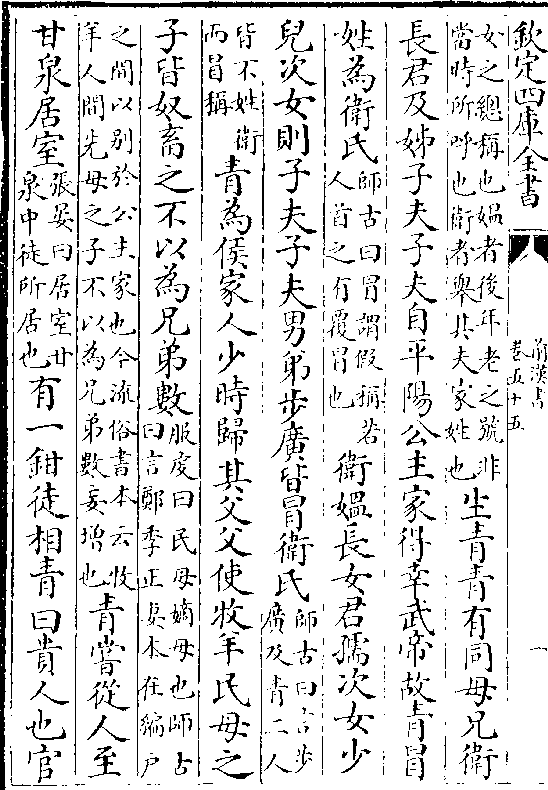 欽定四庫全書
前漢書
卷五十五
一
女之總稱也媼者後年老之號非
當時所呼也衛者舉其夫家姓也
生青青有同母兄衛
長君及姊子夫子夫自平陽公主家得幸武帝故青冒
姓為衛氏
師古曰冒謂假稱若
人首之有覆冒也
衛媼長女君孺次女少
兒次女則子夫子夫男弟步廣皆冒衛氏
師古曰言步
廣及青二人
皆不姓衛
而首稱
青為侯家人少時歸其父父使牧羊民母之
子皆奴畜之不以為兄弟數
服䖍曰民母嫡母也師古
曰言鄭季正妻本在編户
之間以别於公主家也今流俗書本云牧
羊人間先母之子不以為兄弟數妄增也
青嘗從人至
甘泉居室
張晏曰居室甘
泉中徒所居也
有一鉗徒相青曰貴人也官